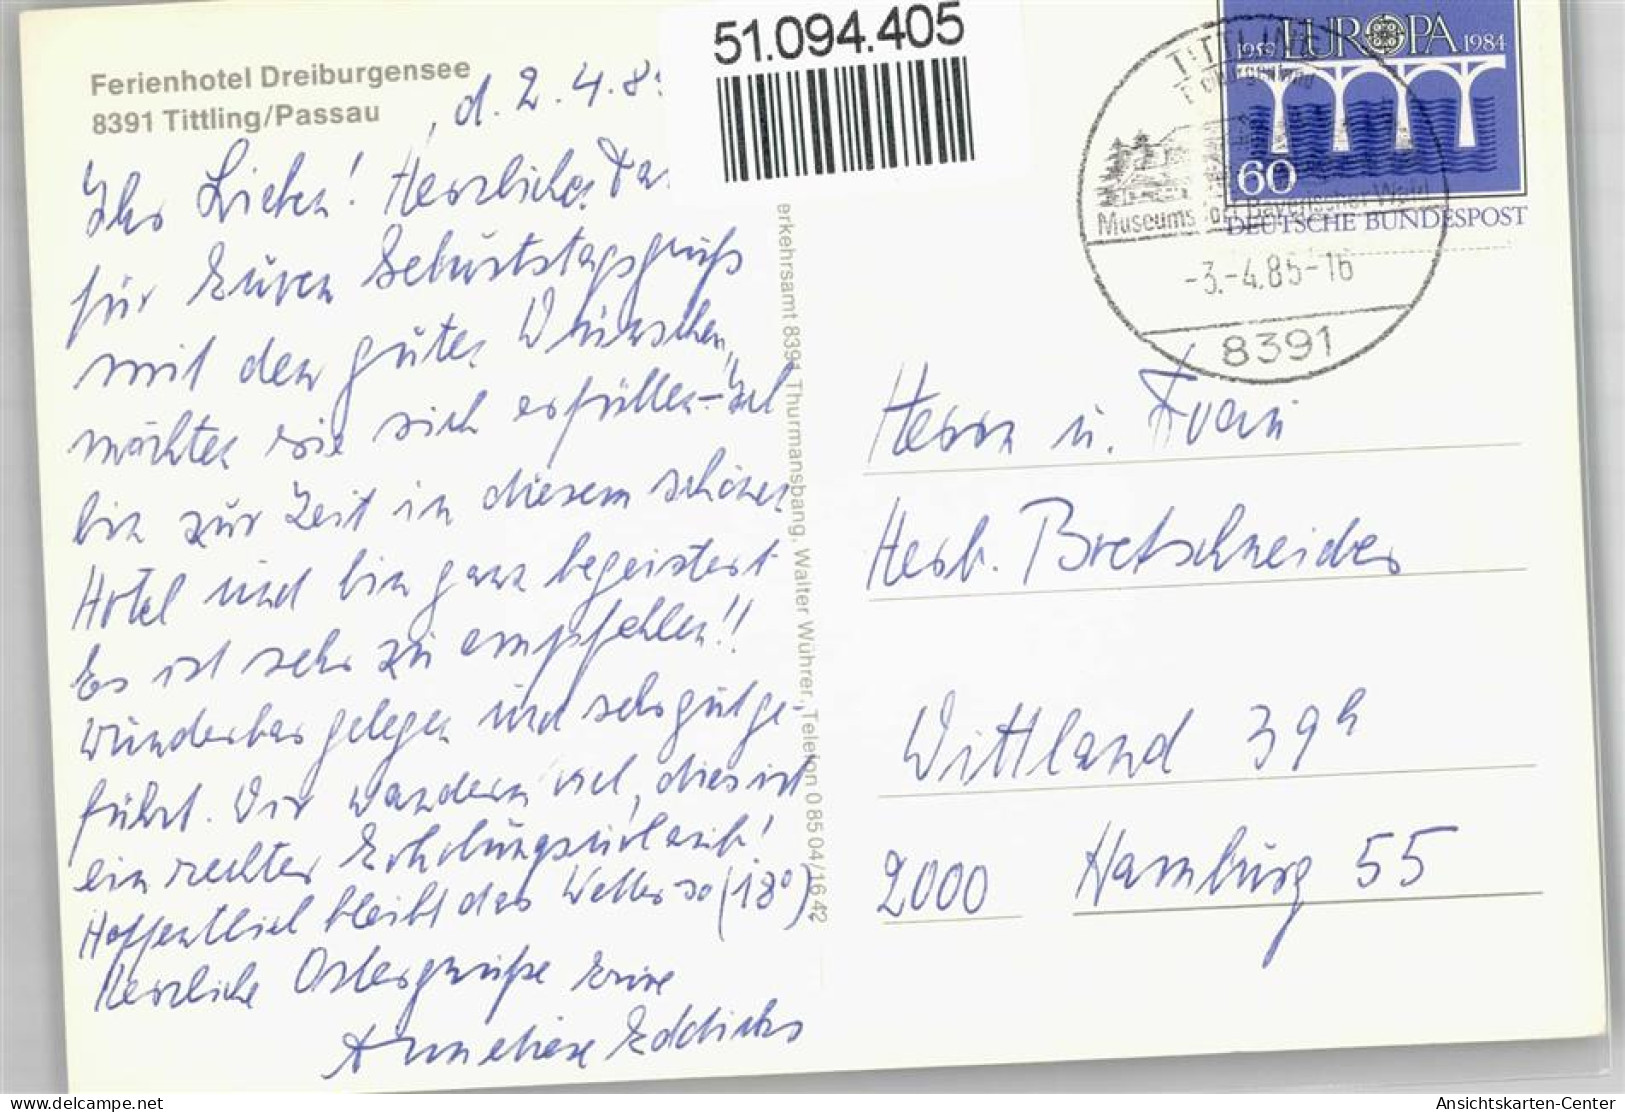 Ferienhotel Dreiburgensee
8391 Tittling/Passau
, d. 2.4.8
Ihr Lieben! Herzlichen Da
für Euren Geburtstagsgruß
mit den guten Wünschen,
möchten sie sich erfüllen - Ich
bin zur Zeit in diesem schönen
Hotel und bin ganz begeistert
Es ist sehr zu empfehlen!!
Wunderbar gelegen und sehr gut ge-
führt. Wir wandern viel, dies ist
ein rechter Erholungsurlaub!
Hoffentlich bleibt das Wetter so (18°).
Herzliche Ostergrüße Eure
Anneliese
51.094.405
erkehrsamt 8391 Thurmansbang, Walter Wührer, Telefon 0 85 04/16 42
EUROPA
1959 1984
60
DEUTSCHE BUNDESPOST
TITTLING
Museumsdorf Bayerischer Wald
-3.-4.85-16
8391
Herrn u. Frau
Herb. Bretschneider
Wittland 39h
2000 Hamburg 55
www.ansichtskarten-center.de
Ansichtskarten-Center